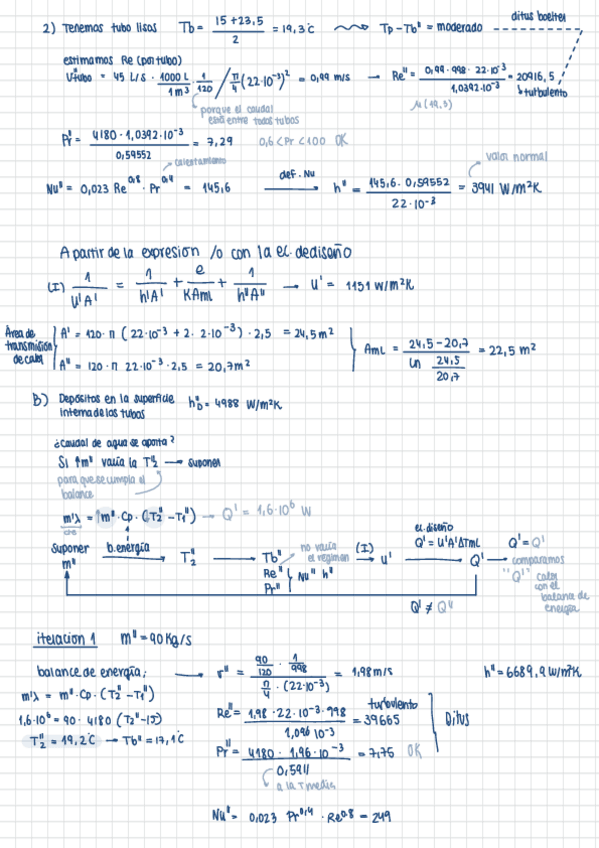 2) Tenemos tubo lisos Tb = (15 + 23,5)/2 = 19,3°C ⟿ Tp - Tb" = moderado ditus boelter
estimamos Re (por tubo)
V"tubo = 45 L/s · 1000 L/1 m³ · 1/120 / π/4 (22·10⁻³)² = 0,99 m/s → Re" = (0,99 · 998 · 22·10⁻³)/(1,0392·10⁻³) = 20916,5
↳ turbulento
μ (19,3)
porque el caudal
está entre todos tubos
Pr" = (4180 · 1,0392·10⁻³)/0,59552 = 7,29 0,6 < Pr < 100 OK
calentamiento
valor normal
Nu" = 0,023 Re^0,8 · Pr^0,4 = 145,6 def. Nu → h" = (145,6 · 0,59552)/(22·10⁻³) = 3941 W/m²K
A partir de la expresión /o con la ec. de diseño
(I) 1/(U'A') = 1/(h'A') + e/(K Aml) + 1/(h"A") → U' = 1151 W/m²K
Área de
transmisión
de calor
A' = 120 · π (22·10⁻³ + 2 · 2·10⁻³) · 2,5 = 24,5 m²
A" = 120 · π 22·10⁻³ · 2,5 = 20,7 m²
Aml = (24,5 - 20,7)/(ln 24,5/20,7) = 22,5 m²
B) Depósitos en la superficie h"D = 4988 W/m²K
interna de los tubos
¿Caudal de agua se aporta?
Si ↑m" varía la T2" → suponer
para que se cumpla el
balance
m'λ = m" · Cp · (T2" - T1") → Q' = 1,6·10⁶ W
cte
suponer m" b. energía → T2" → Tb" no varía el régimen (I) → U' ec. diseño Q' = U'A'ΔTml → Q' Q' = Q'
Re"
Pr" } Nu" h"
comparamos
"Q'" calor
con el
balance de
energía
Q' ≠ Q"
iteracion 1 m" = 90 Kg/s
balance de energía; → v" = (90/120 · 1/998)/(π/4 · (22·10⁻³)) = 1,98 m/s h" = 6689,9 W/m²K
m'λ = m" · Cp · (T2" - T1")
1,6·10⁶ = 90 · 4180 (T2" - 15)
T2" = 19,2°C → Tb" = 17,1°C
Re" = (1,98 · 22·10⁻³ · 998)/(1,096 10⁻³) = 39665 turbulento
Pr" = (4180 · 1,96·10⁻³)/0,5911 = 7,75 OK
Ditus
a la T media
Nu" = 0,023 Pr^0,4 · Re^0,8 = 249